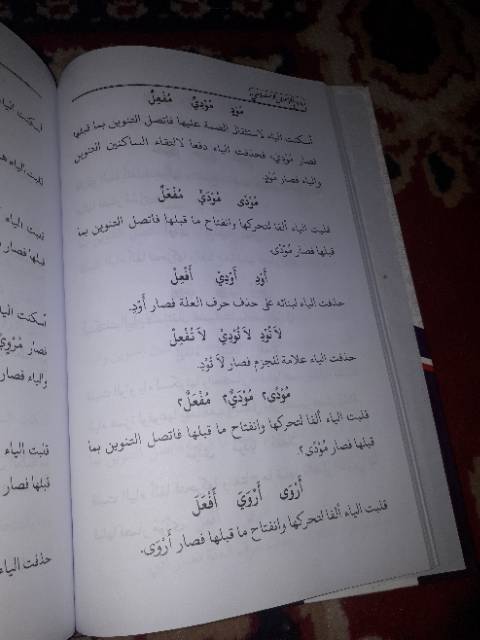 مُوْدٍ مُوْدِيٌ مُفْعِلٌ
أسكنت الياء لاستثقال الضمة عليها فاتصل التنوين بما قبلها
فصار مُوْدِيْ، فحذفت الياء دفعا لالتقاء الساكنين التنوين
والياء فصار مُوْدٍ.
مُوْدًى مُوْدَيٌ مُفْعَلٌ
قلبت الياء ألفا لتحركها وانفتاح ما قبلها فاتصل التنوين بما
قبلها فصار مُوْدًى.
أَوْدِ أَوْدِيْ أَفْعِلْ
حذفت الياء لبنائه على حذف حرف العلة فصار أَوْدِ.
لَا تُوْدِ لَا تُوْدِيْ لَا تُفْعِلْ
حذفت الياء علامة للجزم فصار لَا تُوْدِ.
مُوْدًى٢ مُوْدَيٌ٢ مُفْعَلٌ٢
قلبت الياء ألفا لتحركها وانفتاح ما قبلها فاتصل التنوين بما
قبلها فصار مُوْدًى٢.
أَرْوَى أَرْوَيَ أَفْعَلَ
قلبت الياء ألفا لتحركها وانفتاح ما قبلها فصار أَرْوَى.
أسكنت الياء
قلبت الياء
قبلها فصار
أسكنت اليا
والياء فصار
قلبت الياء
قبلها فصار
حذفت الياء